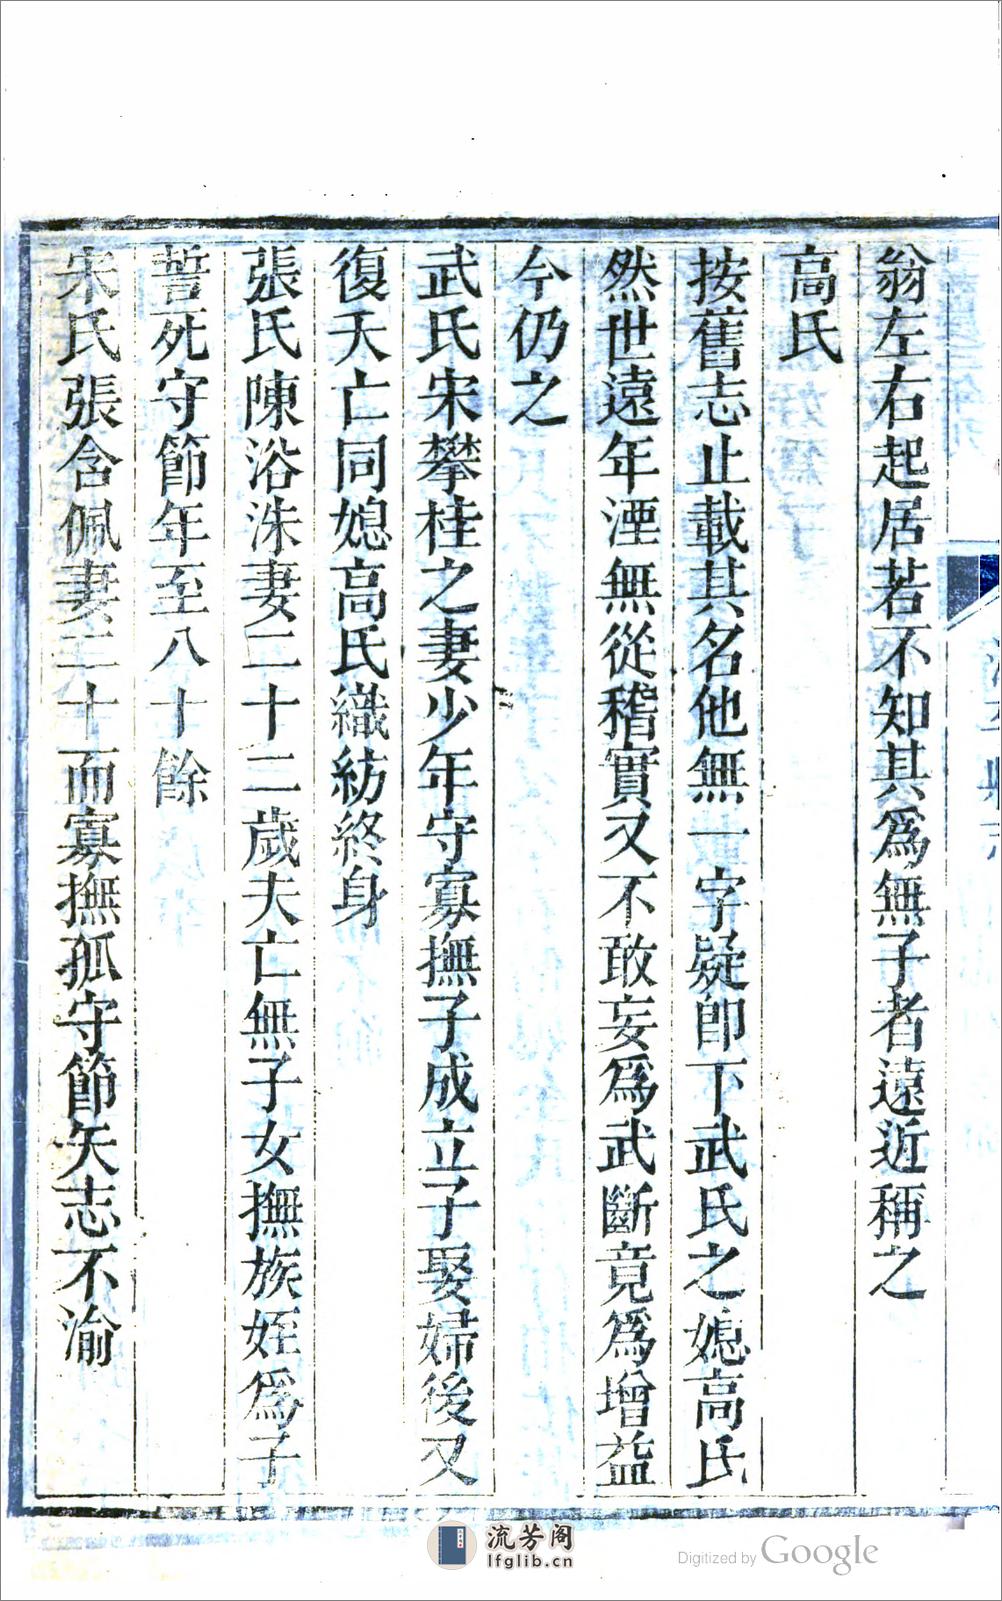 翁左右起居若不知其爲無子者遠近稱之
高氏
按舊志止載其名他無一字疑卽下武氏之媳高氏
然世遠年湮無從稽實又不敢妄爲武斷竟爲增益
今仍之
武氏宋攀桂之妻少年守寡撫子成立子娶婦後又
復夭亡同媳高氏織紡終身
張氏陳浴洙妻二十二歲夫亡無子女撫族姪爲子
誓死守節年至八十餘
宋氏張含佩妻三十而寡撫孤守節矢志不渝
流芳阁
lfglib.cn
Digitized by Google